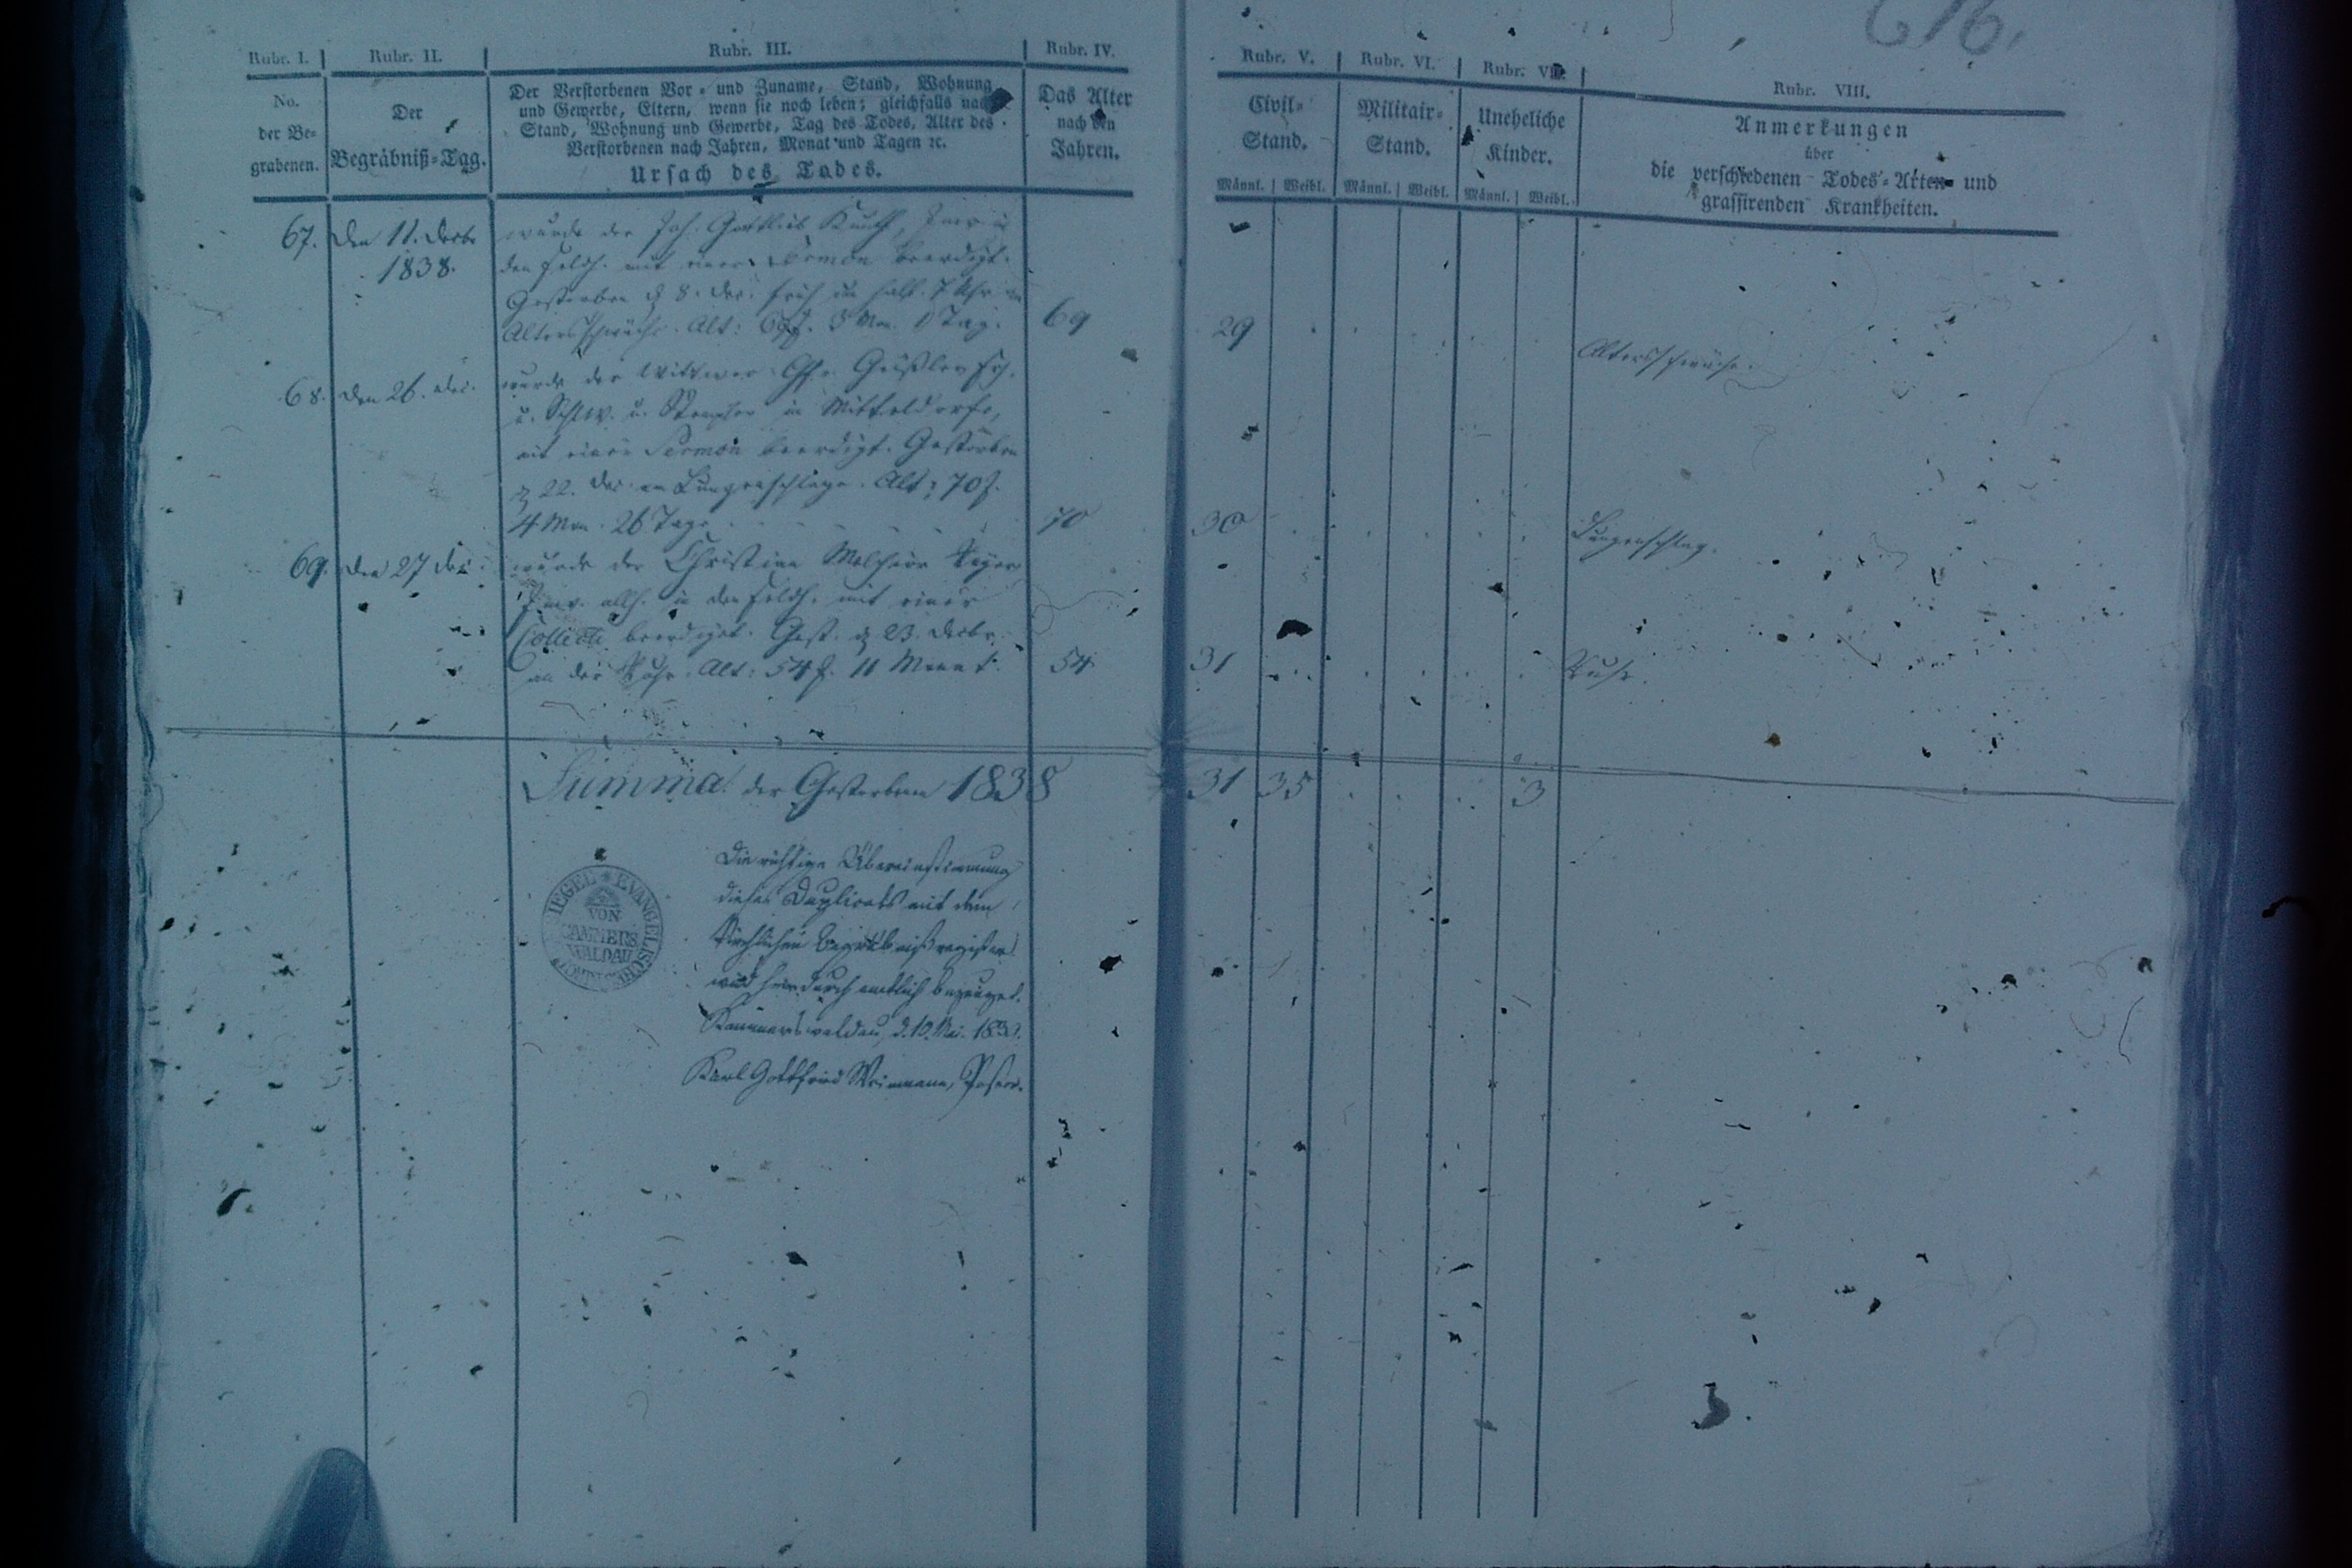 616.
Rubr. I. Rubr. II. Rubr. III. Rubr. IV. Rubr. V. Rubr. VI. Rubr. VII. Rubr. VIII.
No.
der Be-
grabenen.
Der
Begräbniß-Tag.
Der Verstorbenen Vor- und Zuname, Stand, Wohnung
und Gewerbe, Eltern, wenn sie noch leben; gleichfalls nach
Stand, Wohnung und Gewerbe, Tag des Todes, Alter des
Verstorbenen nach Jahren, Monat und Tagen ꝛc.
Ursach des Todes.
Das Alter
nach den
Jahren.
Civil-
Stand.
Männl. Weibl.
Militair-
Stand.
Männl. Weibl.
Uneheliche
Kinder.
Männl. Weibl.
Anmerkungen
über
die verschiedenen Todes-Arten und
grassirenden Krankheiten.
67. den 11. Decbr. wurde der Joh. Gottlieb
1838. den mit einer Sermon beerdigt.
Gestorben d. 8. Dec. früh um halb 7 Uhr an
Altersschwäche. Alt: 69 J. 3 Mon. 1 Tag. 69 29 Altersschwäche.
68. den 26. Dec. wurde der Wittwer
in Mitteldorfe,
mit einer Sermon beerdigt. Gestorben
d. 22. Dec. am Lungenschlage. Alt: 70 J.
4 Mon. 26 Tage. 70 30 Lungenschlag.
69. den 27 Dec. wurde der Christian Melchior
allh. in mit einer
Collecte beerdigt. Gest. d. 23. Decbr.
an der Ruhr. Alt: 54 J. 11 Monat. 54 31 Ruhr.
Summa der Gestorbenen 1838 31 35 3
Die richtige Übereinstimmung
dieses Duplicats mit dem
kirchlichen Begräbnißregister
wird hierdurch amtlich bezeuget.
Kammerswaldau, d. 10. Mai
Karl Gottfried Weinmann, Pastor.
EVANGELISCHE
VON
KAMMERS
WALDAU